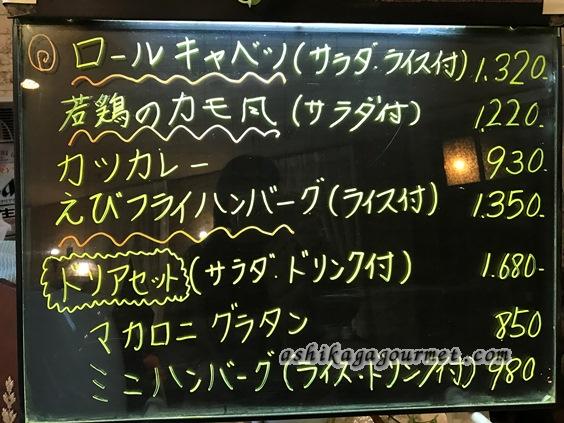 ロールキャベツ(サラダ.ライス付) 1.320-
若鶏のカモ風(サラダ付) 1,220-
カツカレー 930-
えびフライハンバーグ(ライス付) 1.350-
ドリアセット(サラダ.ドリンク付) 1.680-
マカロニグラタン 850
ashikagagourmet.com
ミニハンバーグ(ライス・ドリンク付) 980-